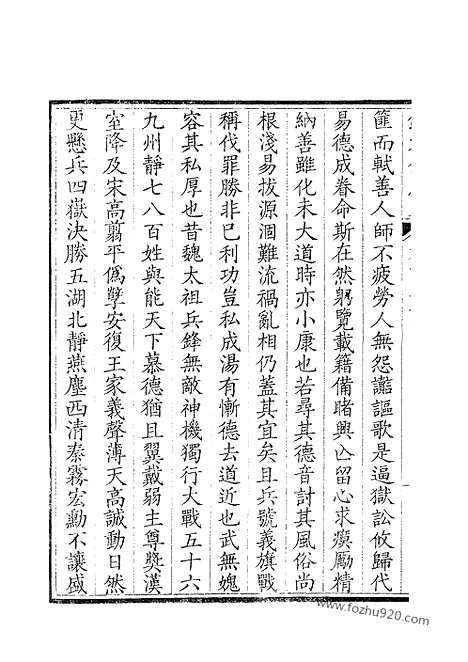 篚而軾善人師不疲勞人無怨讟謳歌是逼獄訟攸歸代
易德成眷命斯在然躬覽載籍備睹興亾留心求瘼勵精
納善雖化未大道時亦小康也若尋其德音討其風俗尚
根淺易拔源涸難流禍亂相仍蓋其宜矣且兵號義旗戰
稱伐罪勝非已利功豈私成湯有慚德去道近也武無愧
容其私厚也昔魏太祖兵鋒無敵神機獨行大戰五十六
九州靜七八百姓與能天下慕德猶且翼戴弱主尊獎漢
室降及宋高翦平僞孽安復王家義聲薄天高誠動日然
更懸兵四嶽決勝五湖北靜燕塵西清秦霧宏勳不讓盛
www.fozhu920.com